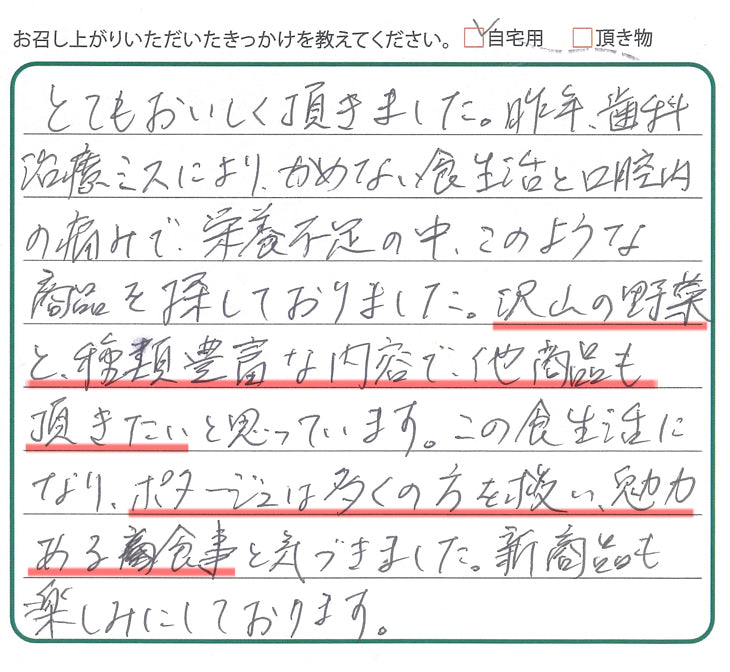 お召し上がりいただいたきっかけを教えてください。 自宅用 頂き物
とてもおいしく頂きました。昨年、歯科
治療ミスにより、かめない食生活と口腔内
の痛みで、栄養不足の中、このような
商品を探しておりました。沢山の野菜
と、種類豊富な内容で、他商品も
頂きたいと思っています。この食生活に
なり、ポタージュは多くの方を救い、魅力
ある食事と気づきました。新商品も
楽しみにしております。